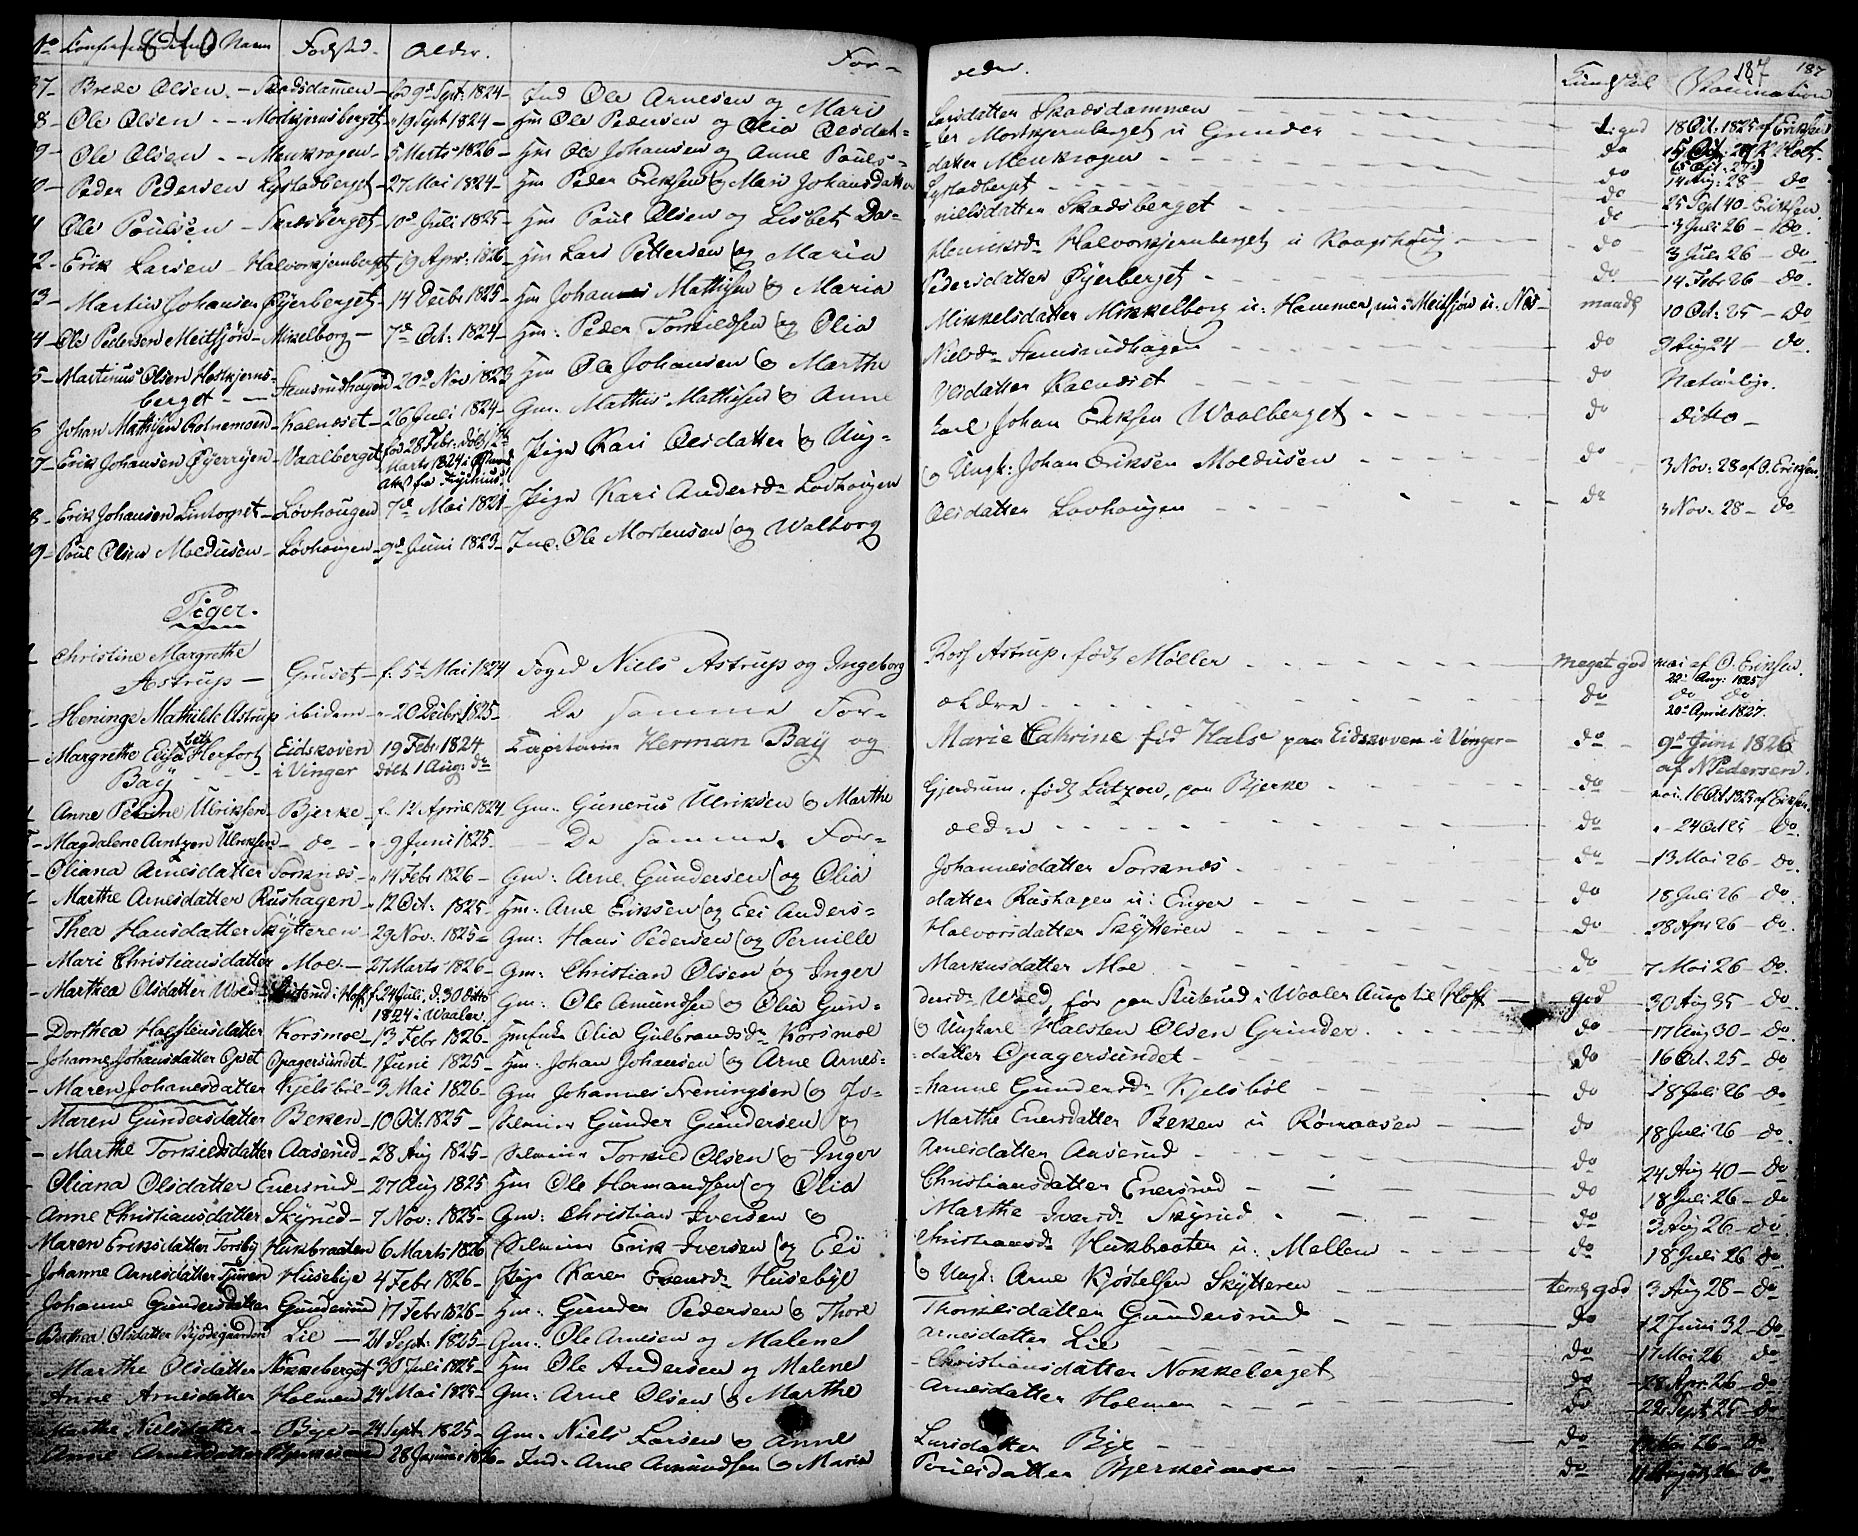 1840
No Confirmandernes Navn Fodsted. Alder. For-
37- Brede Olsen. - Skadsdammen - fød 9de Sept: 1824 - Ind Ole Arnesen og Mari
8- Ole Olsen - - Mortkjernsberget - 19 Sept 1824 - Hm Ole Pedersen og Olia Olsdat-
9- Ole Olsen - - Menkrogen - 5 Marts 1826 - Hm Ole Johansen og Anne Pouls-
Peder Pedersen Lystadberget - 27 Mai 1824 - Hm Peder Eriksen og Mari Johansdatter
Ole Poulsen - Skadsberget - 10de Juli 1825 - Hm Poul Olsen og Lisbet Da-
2- Erik Larsen - Halvorkjernberget 19 Apr: 1826 - Hm Lars Pettersen og Maria
3- Martin Johansen Øyerberget - 14 Decbr 1825 - Hm Johannes Mathisen og Maria
4- Ole Pedersen Meitsjøn - Mikelborg - 7de Oct: 1824 - Hm: Peder Torkildsen og Olia
5- Martinus Olsen Hestkjerns-
berget - - Stemsrudhagen 20de Nov 1823 Hm Ole Johansen og Marthe
6 Johan Mathisen Rotnemoen - Kalnæset - 26 Juli 1824 - Gm. Mathis Mathisen og Anne
7- Erik Johansen Øyerryen - Vaalberget fød 28 Febr. døbt
Marts 1824 i
Pige Kari Olsdatter og Ung-
8- Erik Johansen Lintorpet - Løvhougen 7de Mai 1821 - Pige Kari Andersdr Lovhougen
9- Poul Olsen Maldusen - Løvhougen - 9de Juni 1823 - Ind: Ole Mortensen og Walborg
Piger.
Christine Margrethe
Astrup - Gruset - f. 5te Mai 1824 Foged Niels Astrup og Ingeborg
Heninge Mathilde Astrup ibidem - 20 Decbr 1825 - De samme For-
Margrethe Elisabeth Herfort
Bay Eidskoven
i Vinger 19 Febr 1824
døbt 1 Aug: do Capitain Herman Bay og
Anne Petrine Ulriksen - Bjerke - f. 12 April 1824 Gm: Gunerus Ulriksen og Marthe
Magdalene Arntzen Ulriksen - do - 9 Juni 1825 - De samme For-
Oliana Arnesdatter Torsnæs - 14 Febr 1826 - Gm: Arne Gundersen og Olia
Marthe Arnesdatter Rushagen - 12 Oct: 1825 - Hm: Arne Eriksen og Eli Anders-
Thea Hansdatter Skytteren - 29 Nov: 1825 - Gm: Hans Pedersen og Pernille
Mari Christiansdatter Moe - 27 Marts 1826 - Gm: Christian Olsen og Inger
Marthea Olsdatter Wold - i Hoff f. 24 Juli, d. 30 ditto
1824 i Waaler. Gm: Ole Amundsen og Olia Gun-
Dorthea Halstensdatter Korsmoe - 13 Febr 1826 - Olia Gulbrandsdr Korsmoe
Johanne Johansdatter Opset Opagersundet - 1 Juni 1825 - Hm: Johan Johansen og Arne Arnes-
Maren Johanesdatter Kjelsbøl - 3 Mai 1826 - Gm Johannes Henningsen og Jo-
Maren Gundersdatter Beken - 10 Oct. 1825 - Gunder Gundersen og
Marthe Torkildsdatter Aaserud - 28 Aug 1825 - Torkild Olsen og Inger
Oliana Olsdatter Enersrud - 27 Aug 1825 Hm Ole Hermandsen og Olia
Anne Christiansdatter Skyrud - 7 Nov: 1825 - Gm: Christian Iversen og
Maren Eriksdatter Torsby Hukbraaten 6 Marts 1826 Erik Iversen og Eli
Johanne Arnesdatter Tjuren Husebye 4 Febr 1826 - Pige Karen Enersdr Husebye
Johanne Gundersdatter Gundersrud 17 Febr 1826 - Hm: Gunder Pedersen og Thore
Berthea Olsdatter Lie - 21 Sept: 1825 - Gm: Ole Arnesen og Malene
Marthe Olsdatter Nokkeberget 30 Juli 1825 - Hm Ole Andersen og Malene
Anne Arnesdatter Holmen 24 Mai 1825 - Gm: Arne Olsen og Marthe
Marthe Nielsdatter - Bye - 24 Sept. 1825 - Gm. Niels Larsen og Anne
Anne Arnesdatter 28 Januar 1826 - Ind. Arne Amundsen og Maria
187 187
ældre. Kundskab Vaccination
Larsdatter Skadsdammen - - - 18 Oct: 1825 af Eriksen
-ter Mortkjernberget u Grinder do
datter Menkrogen - - - do
Lystadberget - - - do 14 Aug: 28 - do
nielsdatter Skadsberget - - - do 25 Sept 40 - Eriksen.
Henriksdr Halvorkjernberget u Kaagshoug - - do 3 Juli 26 - do.
Pedersdatter Øyerberget - - - do. 3 Juli 26 - do
Mikkelsdatter Mikkelborg u: Hammer, nu i Meitsjøn u. Nor- maads 14 Febr 26 - do.
Nielsdr Stemsrudhagen - - - do 10 Oct: 25 - do
Olsdatter Kalnæset - - - do 9 Aug 24 - do.
karl Johan Eriksen Waalberget - - - do Naturlige.
og Ungk: Johan Eriksen Moldusen - - - do ditto -
Olsdatter Lovhougen - - - do 3 Nov: 28 af O. Eriksen.
3 Nov. 28 - do
Rosf Astrup, født Møller - - - meget god nai af O. Eriksen.
22 Aug: 1825
ældre - - - do do do
20de April 1827.
Marie Cathrine fød Hals paa Eidskoven i Vinger - do - 9de Juni 1826
af N Pedersen.
Gjerdrum, født Lützow, paa Bjerke - - - do
ældre - - - do - 24 Oct 25 - do.
Johannesdatter Torsnæs - - - do - 13 Mai 26 - do.
datter Rushagen u: Enger - - - do 18 Juli 26 - do.
Halvorsdatter Skytteren - - - do 28 Apr 26 - do.
Markusdatter Moe - - - do 7 Mai 26 - do.
dersdr Wold, før paa i Waaler Anx til Hoff - god - 30 Aug 35 - do.
og Ungkarl Halsten Olsen Grinder - - - do - 17 Aug 30 - do.
-datter Opagersundet - - - do - 16 Oct. 25 - do
-hanne Gundersdr Kjelsbøl - - - do - 18 Juli 26 - do
Marthe Enersdatter Beken u Rønaasen - - - do 18 Juli 26 - do.
Arnesdatter Aaserud - - - do 24 Aug 40 - do
Christiansdatter Enersrud - - - do 18 Juli 26 - do
Marthe Iversdr Skyrud - - - do 3 Aug 26 - do.
Christiansdr Hukbraaten u: Mellem - - - do 18 Juli 26 do.
og Ungk: Arne Kjøstelsen Skytteren - - temg god 3 Aug 28 - do
Thorkelsdatter Gundersrud - - - do 12 Juni 32 - do
Arnesdatter Lie - - - do - 17 Mai 26 do
Christiansdatter Nokkeberget - - - do - 28 Apr. 26 - do
Arnesdatter Holmen - - - do - 22 Sept 25 - do
Larsdatter Bye - - - do Mai 26 - do.
Poulsdatter - - - do 26 - do